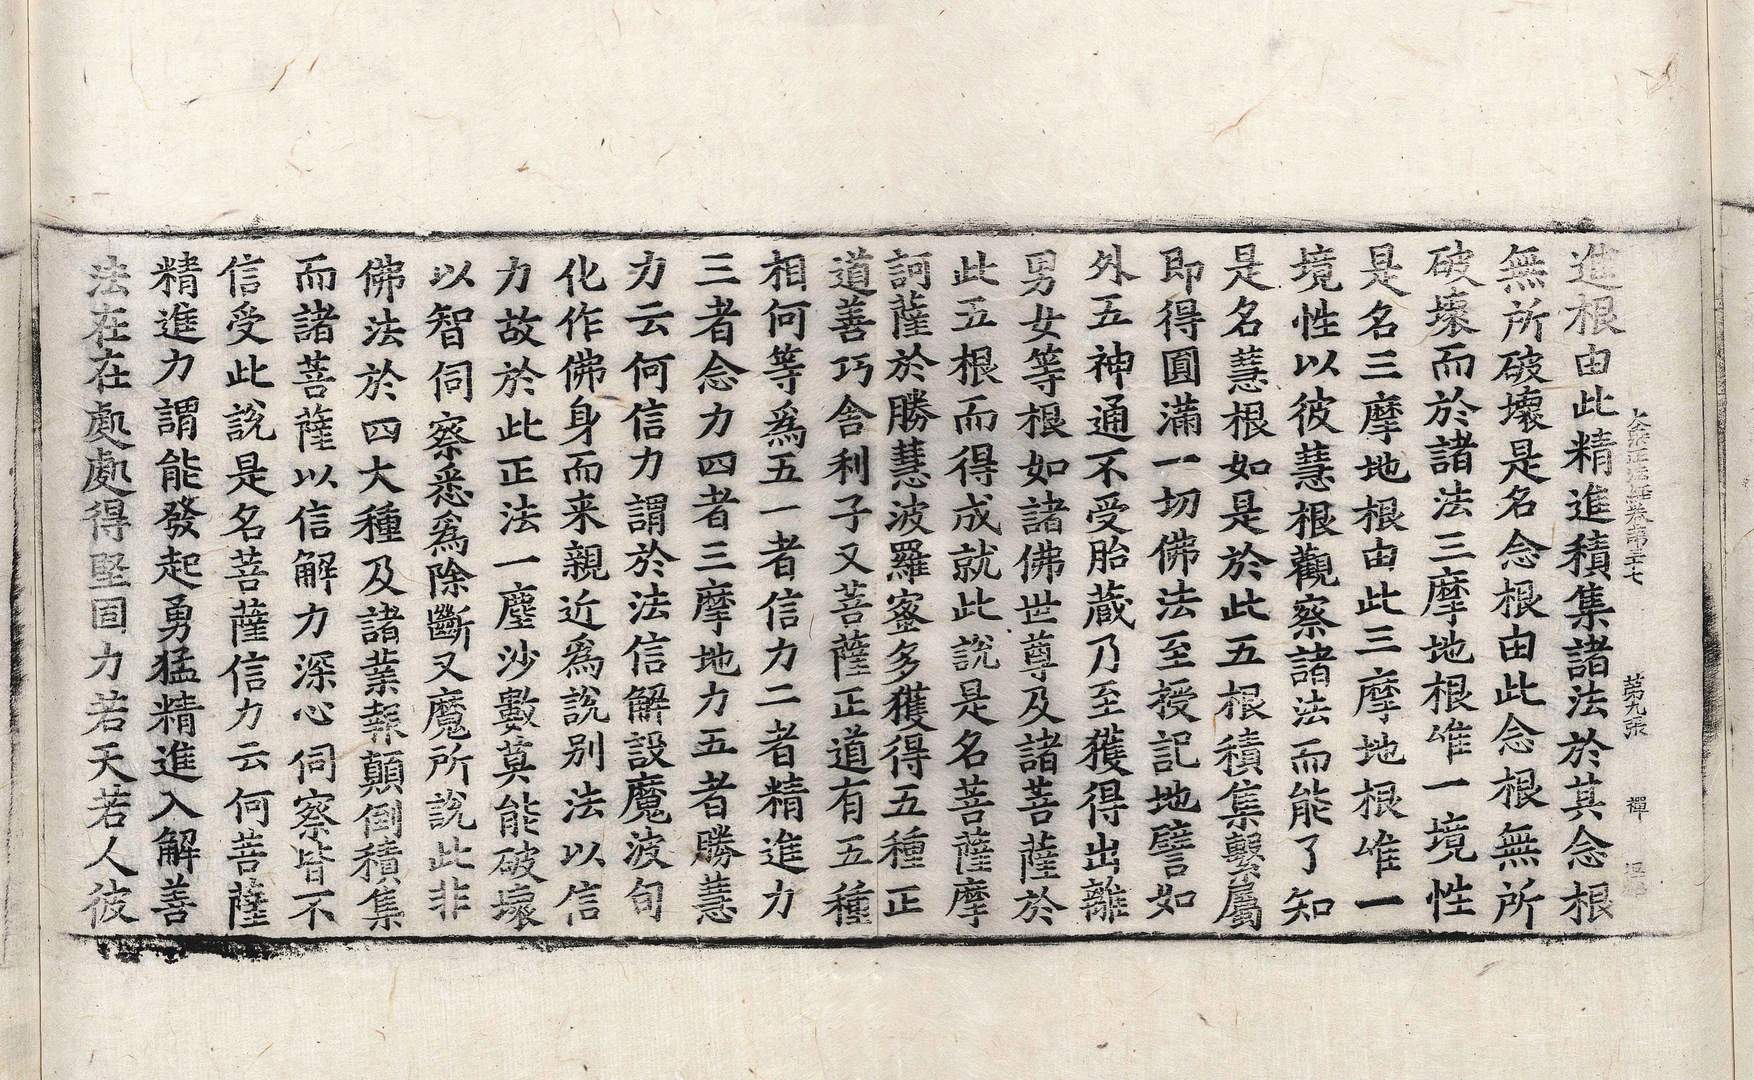 大乘正法經卷第三十七 第九張 禪
進根由此精進積集諸法於其念根
無所破壞是名念根由此念根無所
破壞而於諸法三摩地根唯一境性
是名三摩地根由此三摩地根唯一
境性以彼慧根觀察諸法而能了知
是名慧根如是於此五根積集繫屬
即得圓滿一切佛法至授記地譬如
外五神通不受胎藏乃至獲得出離
男女等根如諸佛世尊及諸菩薩於
此五根而得成就此說是名菩薩摩
訶薩於勝慧波羅蜜多獲得五種正
道善巧舍利子又菩薩正道有五種
相何等為五一者信力二者精進力
三者念力四者三摩地力五者勝慧
力云何信力謂於法信解設魔波旬
化作佛身而来親近為說別法以信
力故於此正法一塵沙數莫能破壞
以智伺察悉為除斷又魔所說此非
佛法於四大種及諸業報顛倒積集
而諸菩薩以信解力深心伺察皆不
信受此說是名菩薩信力云何菩薩
精進力謂能發起勇猛精進入解善
法在在處處得堅固力若天若人彼